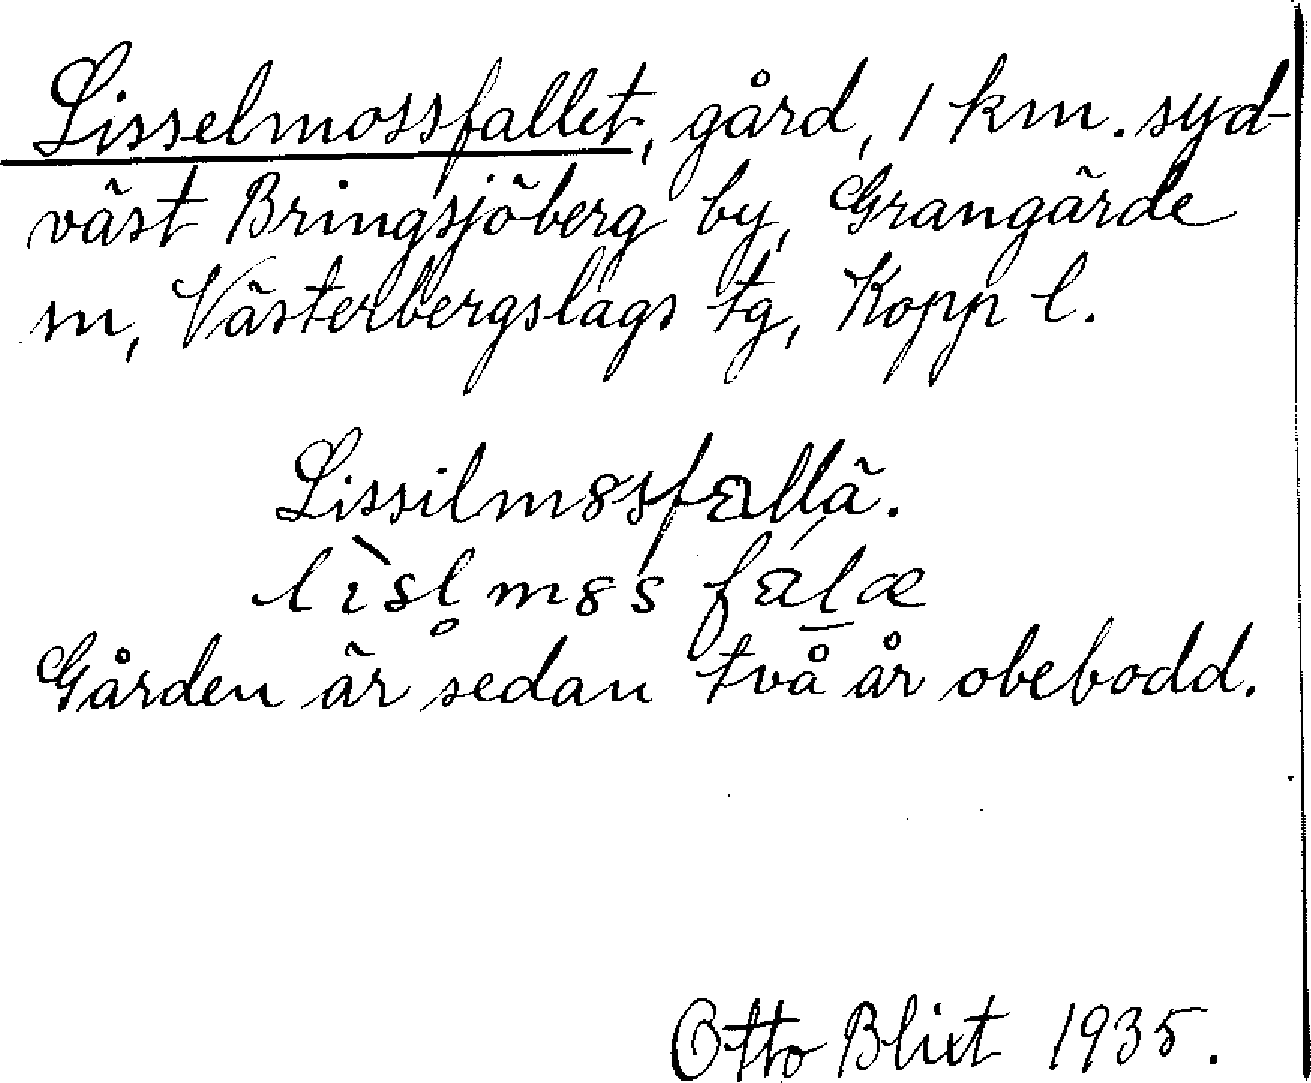 Lisselmossfallet, gård, 1 km. syd-
väst Bringsjöberg by, Grangärde
sn, Västerbergslags tg, Kopp l.
Lissilm8sfallä.
Gården är sedan två år obebodd.
Otto Blixt 1935.